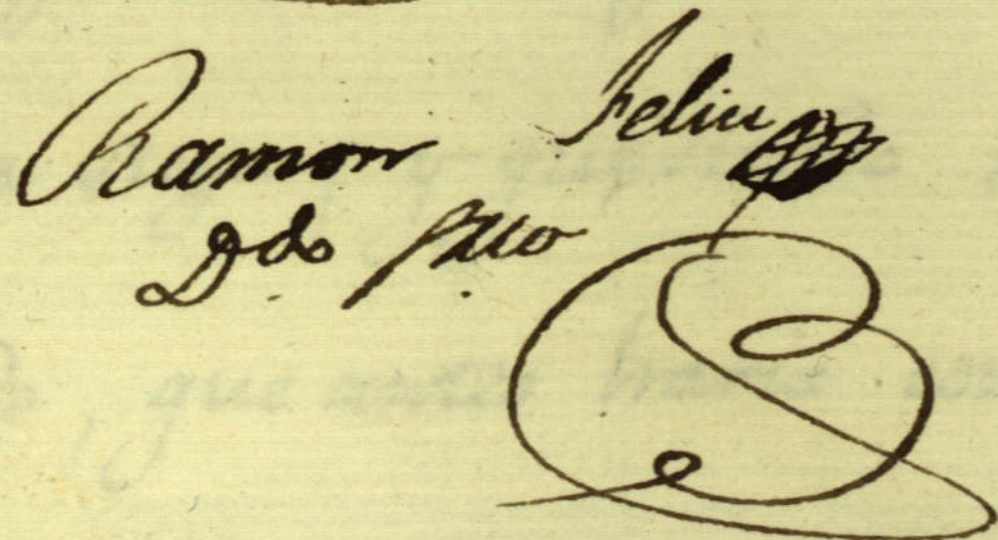 Ramon Feliu
D.do Srio